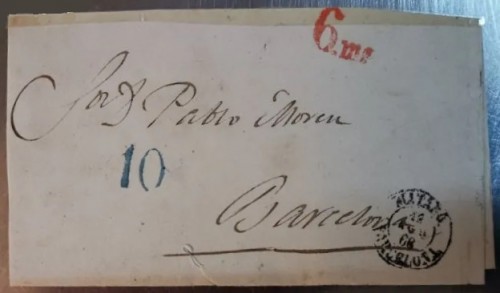 6.ms
Sor D. Pablo Moreu
10
Barcelona
MATARO
BARCELONA